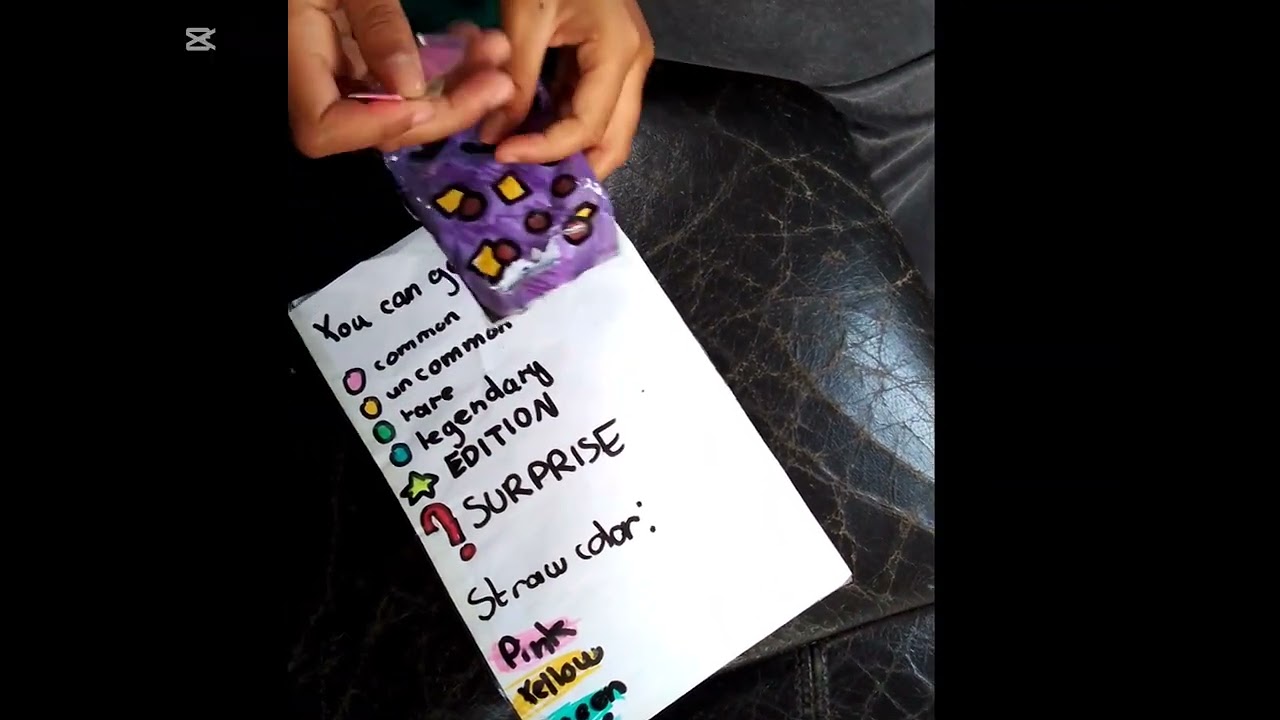 You can
common
uncommon
rare
legendary
EDITION
? SURPRISE
Straw color:
Pink
Yellow